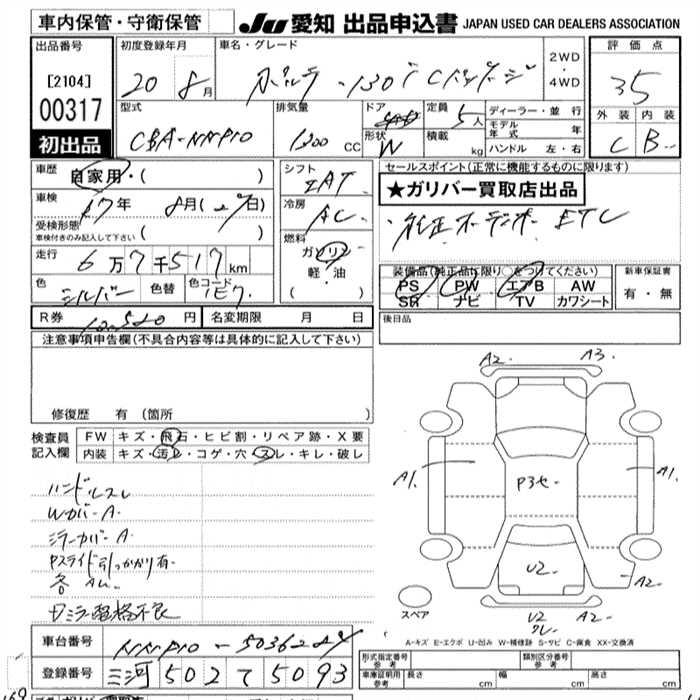 車内保管・守衛保管
JU 愛知 出品申込書 JAPAN USED CAR DEALERS ASSOCIATION
出品番号
[2104]
00317
初出品
初度登録年月
20 8月
車名・グレード
ポルテ・130i Cパッケージ
2WD・4WD
評価点
35
外装 内装
C B
型式
CBA-NNP10
排気量
1300 CC
ドア
形状
W
定員
5人
積載
kg
ディーラー・並行
モデル年式 年
ハンドル 左・右
車歴
自家用・( )
車検
17年 8月(20日)
受検形態
車検付きのみ記入して下さい ( )
走行
6万7千517km
色
シルバー
色替
色コード
1E7
シフト
IAT
冷房
AC
燃料
ガソリン
軽・油
( )
セールスポイント(正常に機能するものに限ります)
★ガリバー買取店出品
純正オーディオ ETC
装備品(純正品に限り○をつけてください)
PS PW エアB AW
SR ナビ TV カワシート
新車保証書
有・無
R券 12,520円
名変期限 月 日
後日品
注意事項申告欄(不具合内容等は具体的に記入して下さい)
修復歴 有(箇所
検査員記入欄
FW キズ・飛石・ヒビ割・リペア跡・X要
内装 キズ・汚レ・コゲ・穴・スレ・キレ・破レ
ハンドルスレ
Wカバー A
ミラーカバー A
Pスライド引っかかり有
各 AU
Dミラー電格不良
A2 A3
A1 P3セ A1
U2
A2
スペア
U2 クレ A2
A-キズ E-エクボ U-凹み W-補修跡 S-サビ C-腐食 XX-交換済
車台番号 NNP10-5036284
登録番号 三河 502 て 5093
形式指定番号 参考
類別区分番号 参考
車庫証明用 参考 長さ cm 幅 cm 高さ cm